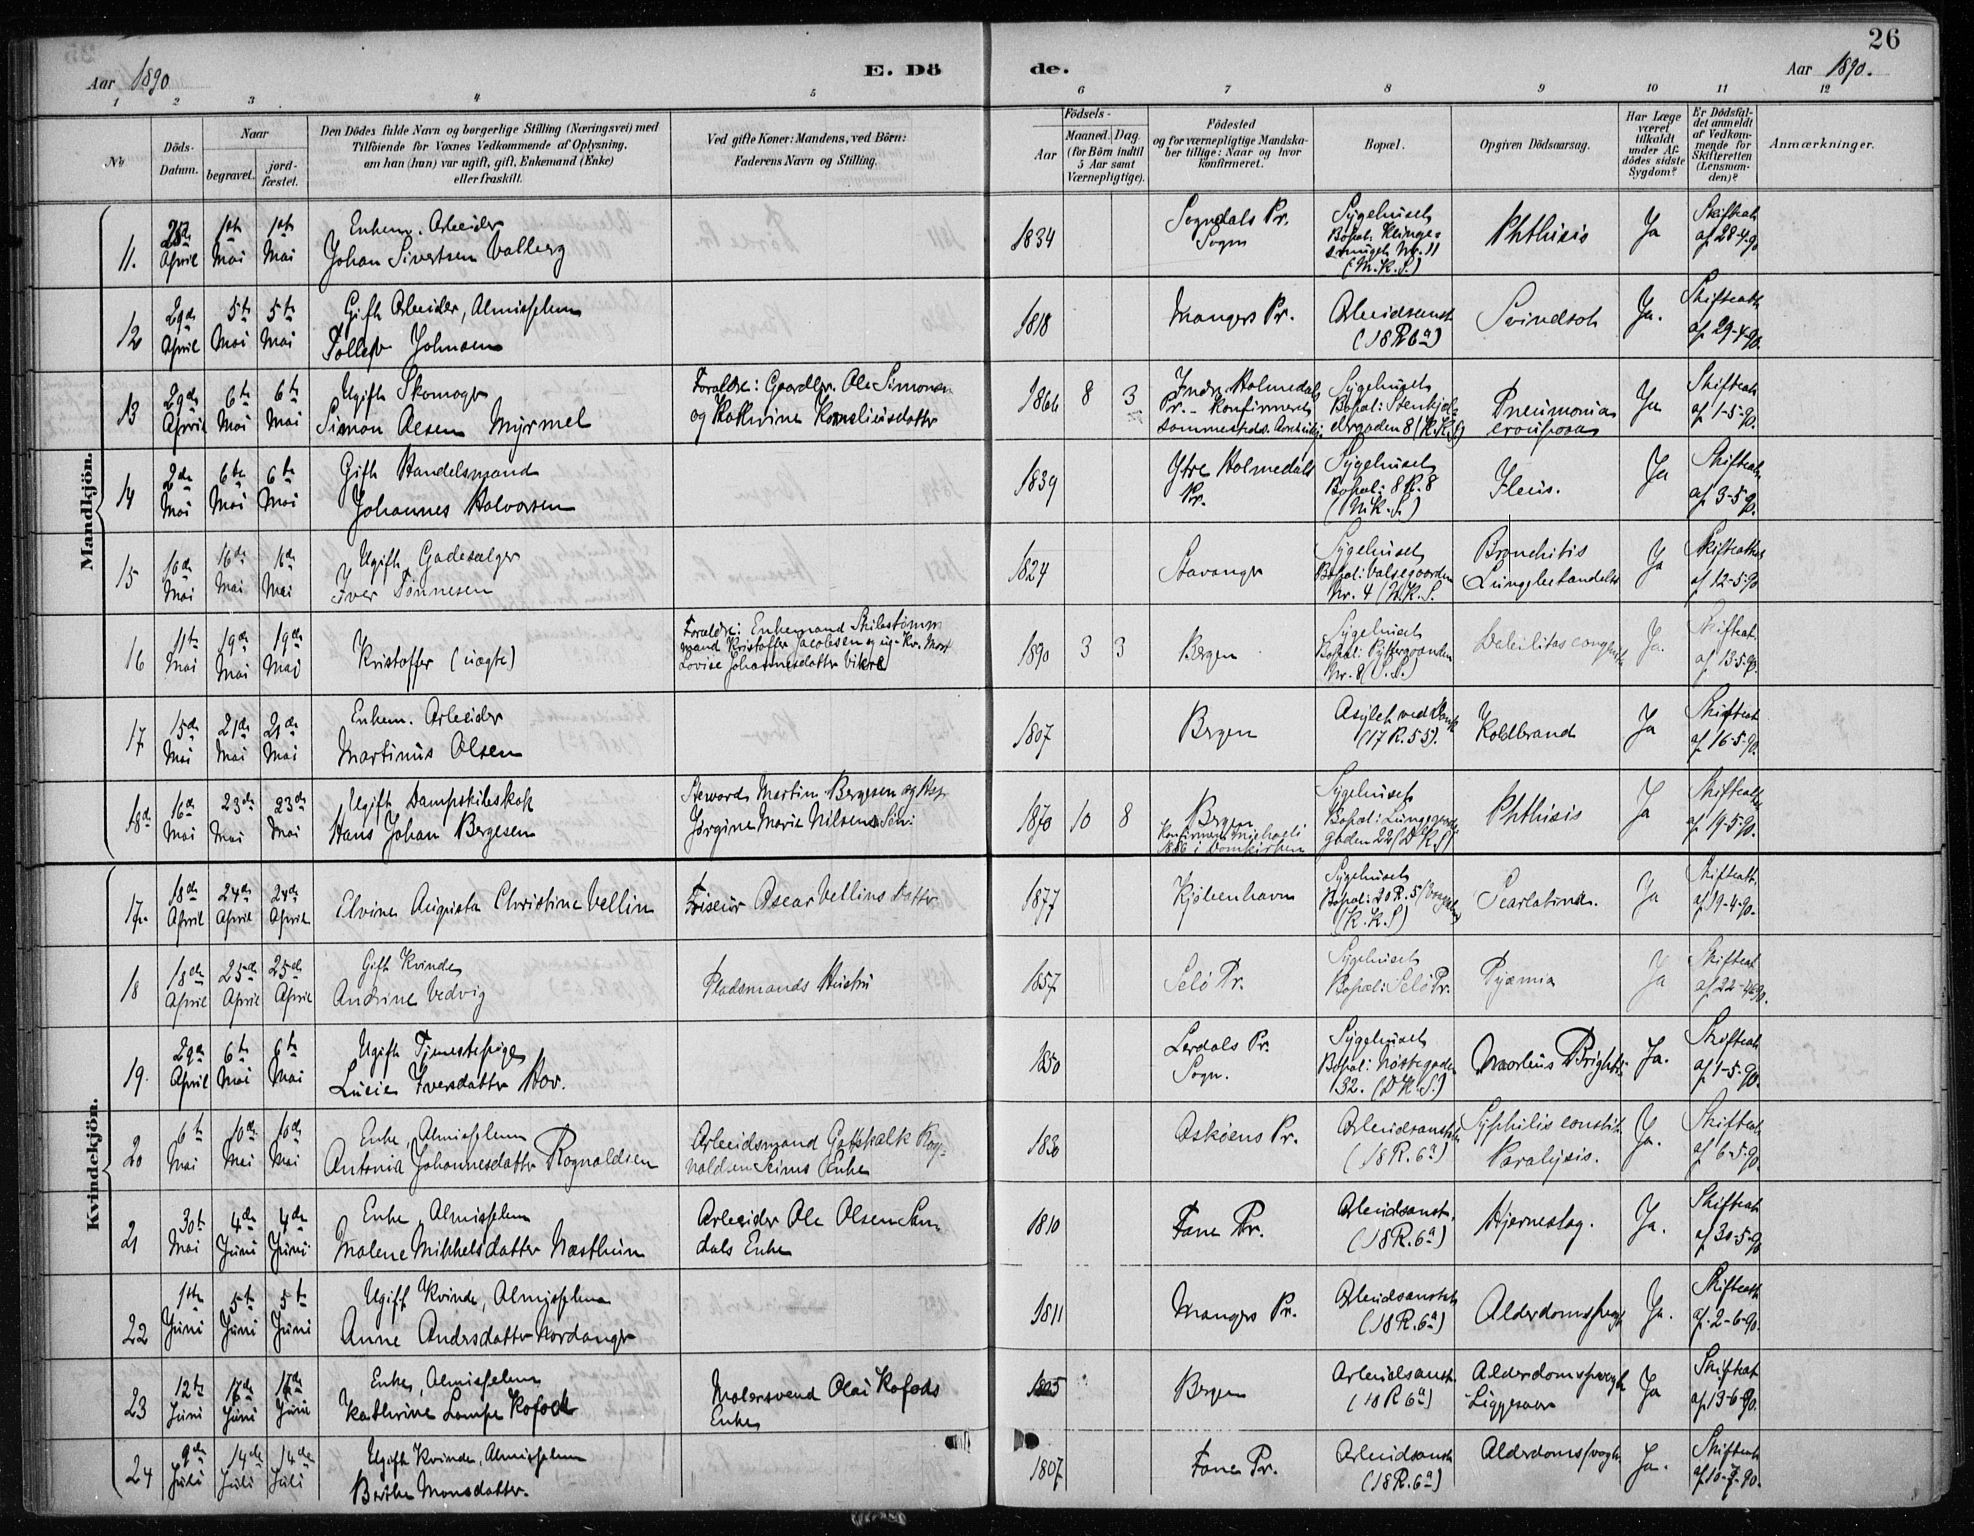 26
Aar 1890
E. Dö
de.
Aar 1890.
1 2 3 4 5 6 7 8 9 10 11 12
No
Döds-
Datum.
Naar
begravet.
jord-
fæstet.
Den Dödes fulde Navn og borgerlige Stilling (Næringsvei) med
Tilföiende for Voxnes Vedkommende af Oplysning,
om han (hun) var ugift, gift, Enkemand (Enke)
eller fraskilt.
Ved gifte Koner: Mandens, ved Börn:
Faderens Navn og Stilling.
Födsels-
Aar
Maaned.
Dag.
(for Börn indtil
5 Aar samt
Værnepligtige).
Födested
og for værnepligtige Mandska-
ber tillige: Naar og hvor
konfirmeret.
Bopæl.
Opgiven Dödsaarsag.
Har Læge
været
tilkaldt
under Af-
dödes sidste
Sygdom?
Er Dödsfal-
det anmeldt
af Vedkom-
mende for
Skifteretten
(Lensman-
den)?
Anmærkninger.
Mandkjön.
11. April 1st Mai 1st Mai
Enkem. Arbeider
Johan Sivertsen Valberg
1834
Sogndals Pr.
Sogn
Sygehuset
Bopæl: Klinge-
smuget Nr. 11
(M.K.S.)
Phthisis
Ja
Skifteat
af 28-4-90
12 29de April 5te Mai 5te Mai
Gift Arbeider, Almisselem
Tollef Johnsen
1818
Mangers Pr.
Arbeidsanst
(18 R 6a)
Svindsot
Ja.
Skifteatt
af 29-4-90.
13 29de April 6te Mai 6te Mai
Ugift Skomager
Simon Olsen Myrmel
Forældre: Gaardbr. Ole Simonsen
og Kathrine Korneliusdatter
1866 8 3
Indre Holmedals
Pr. - Konfirmeret
sammesteds
Sygehuset
Bopæl: Stenkjel-
lergaden 8 (K.K.S)
Pneumonia
crouposa
Ja
Skifteatt
af 1-5-90.
14 2de Mai 6te Mai 6te Mai
Gift Handelsmand
Johannes Halvorsen
1839
Ytre Holmedals
Pr.
Sygehuset
Bopæl: 8 R. 8
(N.K.S.)
Ileus.
Ja
Skifteatt
af 3-5-90.
15 10de Mai 16de Mai 16de Mai
Ugift Gadesælger
Iver Tönnesen
1824
Stavanger
Sygehuset
Bopæl: Valsegaarden
Nr. 4 (N.K.S.
Bronchitis
Lungebetændelse
Ja
Skifteattest
af 12-5-90
16 11te Mai 19de Mai 19de Mai
Kristoffer (uægte)
Forældre: Enkemand Skibstömm
mand Kristoffer Jacobsen og ug. Kv. Mart
Lovise Johannesdatter Vikre
1890 3 3
Bergen
Sygehuset
Bopæl: Pyttergaarden
Nr. 8
Debilitas congenita
Ja.
Skifteat.
af 13-5-90.
17 15de Mai 21de Mai 21de Mai
Enkem. Arbeider
Martinus Olsen
1807
Bergen
Asylet ved Dank
(17 R. 55).
Koldbrand
Ja
Skifteat
af 16-5-90.
18d 16de Mai 23de Mai 23de Mai
Ugift Dampskibskok
Hans Johan Bergesen
Steward Martin Bergesen og
Jörgine Marie Nilsens Sön
1870 10 8
Bergen
Konfirmeret Michaeli
1886 i Domkirken
Sygehuset
Bopæl: Lungegaards
gaden 22 (D.K.S)
Phthisis
Ja
Skifteatt
af 19-5-90.
Kvindekjön.
17 18de April 24de April 24de April
Elvine Augusta Christine Vellin
Friseur Oscar Vellins Datter
1877
Kjöbenhavn
Sygehuset
Bopæl: 20 R. 5
(K.K.S)
Scarlatina.
Ja
Skifteatt.
af 19-4-90.
18 18de April 25de April 25de April
Gift Kvinde
Andrine Vedvig
Pladsmands Hustru
1857
Selö Pr.
Sygehuset
Bopæl: Selö Pr.
Pyæmia
Ja
Skifteat
af 22-4-90.
19. 29de April 6te Mai 6te Mai
Ugift Tjenestepige
Lucie Iversdatter Hov.
1850
Lerdals Pr.
Sogn.
Sygehuset
Bopæl: Nöstegaden
32. (D.K.S.)
Morbus Brightii
Ja.
Skifteat
af 1-5-90.
20 6te Mai 10de Mai 10de Mai
Enke, Almisselem
Antonia Johannesdatter Rognaldsen
Arbeidsmand Gottskalk Rog-
naldsen Seims Enke
1830
Askøens Pr.
Arbeidsanst
(18 R. 6a)
Syphilis constit.
Paralysis.
Ja.
Skifteatt
af 6-5-90.
21 30te Mai 4de Juni 4de Juni
Enke, Almisselem
Malene Mikkelsdatter Næsthun
Arbeider Ole Olsen San-
dals Enke
1810
Fane Pr.
Arbeidsanst.
(18 R. 6a)
Hjerneslag.
Ja.
Skifteatt
af 30-5-90
22 1ste Juni 5te Juni 5te Juni
Ugift Kvinde, Almisselem
Anne Andersdatter Nordanger
1811
Mangers Pr.
Arbeidsanst
(18 R. 6a)
Alderdomssvagh
Ja.
Skifteatt
af 2-6-90.
23 12te Juni 17de Juni 17de Juni
Enke, Almisselem
Kathrine Lampe Kofoed
Malersvend Olai Kofods
Enke
1805
Bergen
Arbeidsanst
(18 R 6a)
Alderdomssvagh
Liggesaar
Ja
Skifteat
af 13-6-90.
24 9de Juli 14de Juli 14de Juli
Ugift Kvinde, Almisselem
Berthe Monsdatter.
1807
Fane Pr.
Arbeidsanst
(18 R. 6a)
Alderdomssvagh
Ja.
Skifteatt
af 10-7-90.